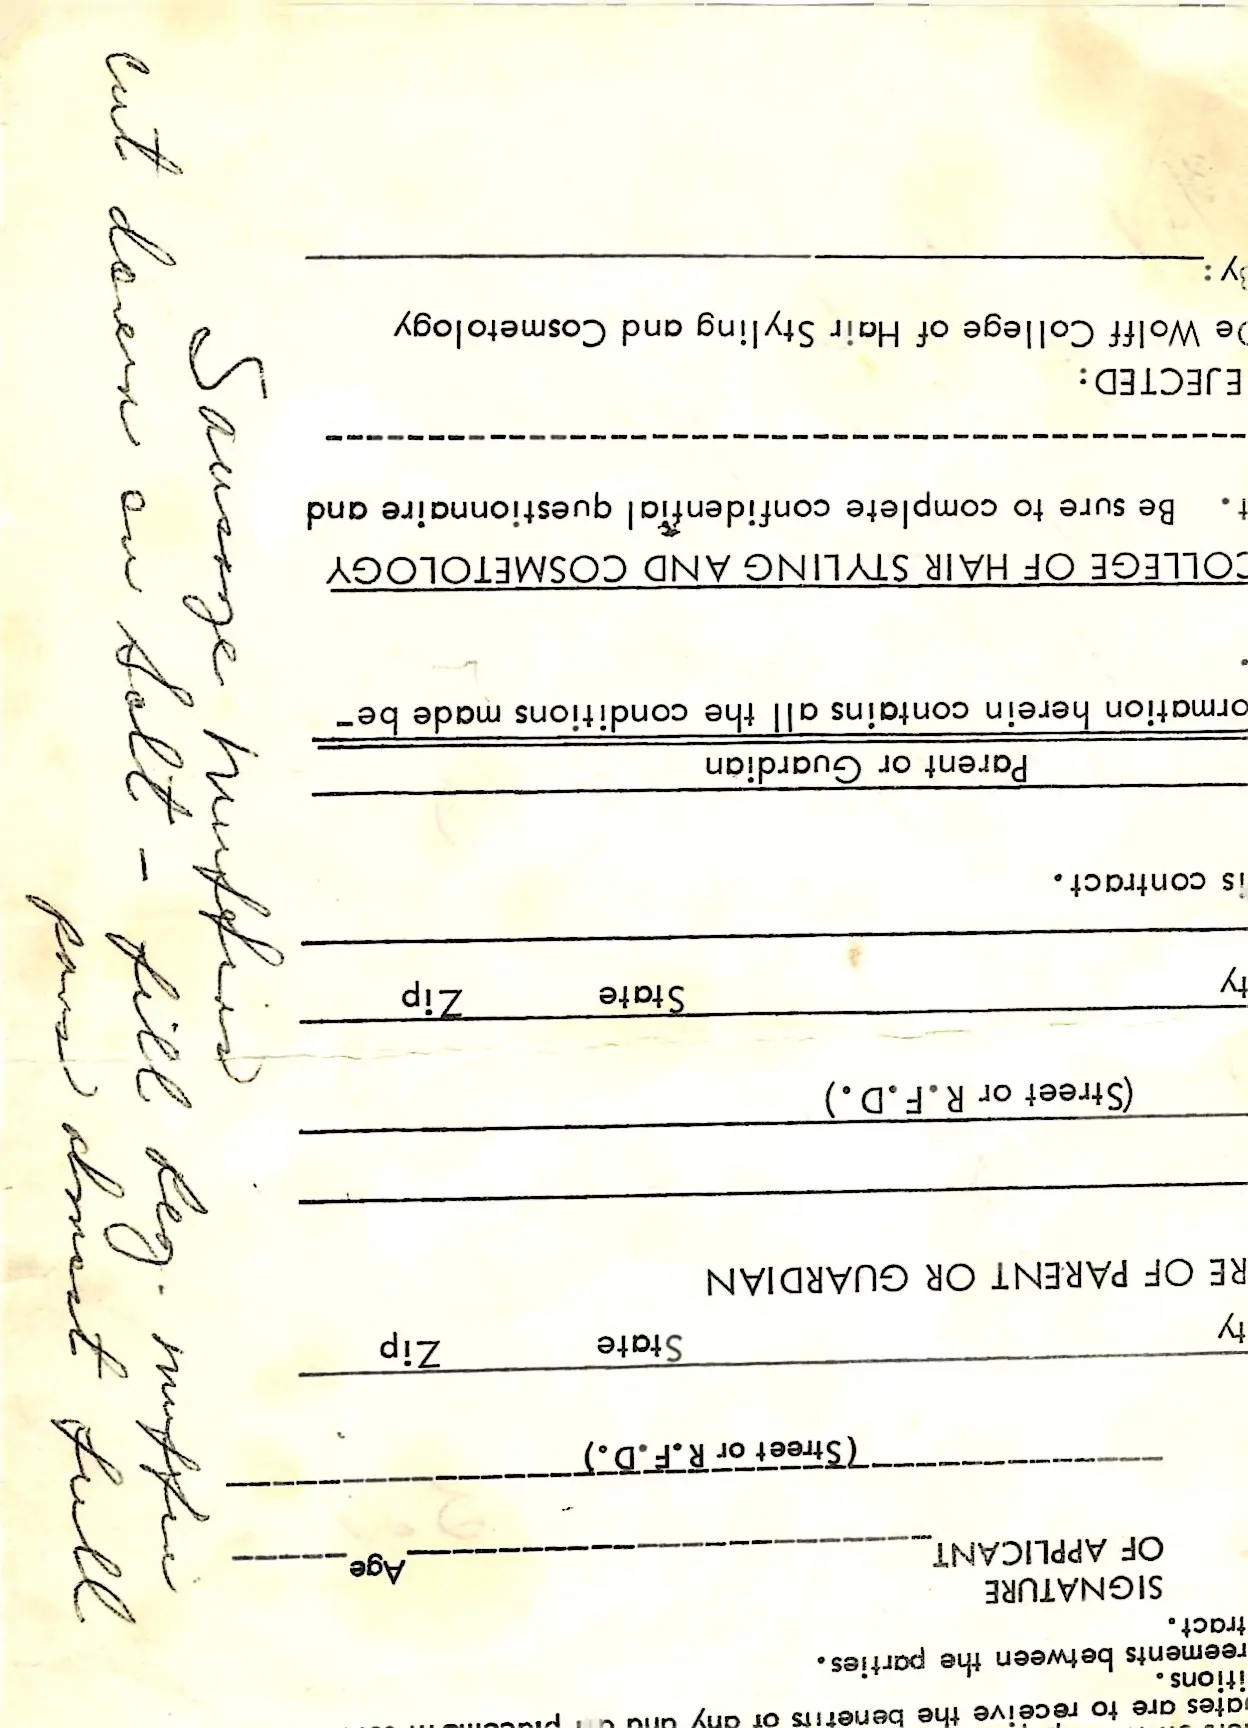 Sausage muffins
cut down on salt - fill reg. muffin
pans almost full
ates are to receive the benefits of any and all
itions.
reements between the parties.
tract.
SIGNATURE
OF APPLICANT Age
(Street or R.F.D.)
ty State Zip
RE OF PARENT OR GUARDIAN
(Street or R.F.D.)
ty State Zip
is contract.
Parent or Guardian
ormation herein contains all the conditions made be-
.
COLLEGE OF HAIR STYLING AND COSMETOLOGY
t. Be sure to complete confidential questionnaire and
EJECTED:
De Wolff College of Hair Styling and Cosmetology
By: